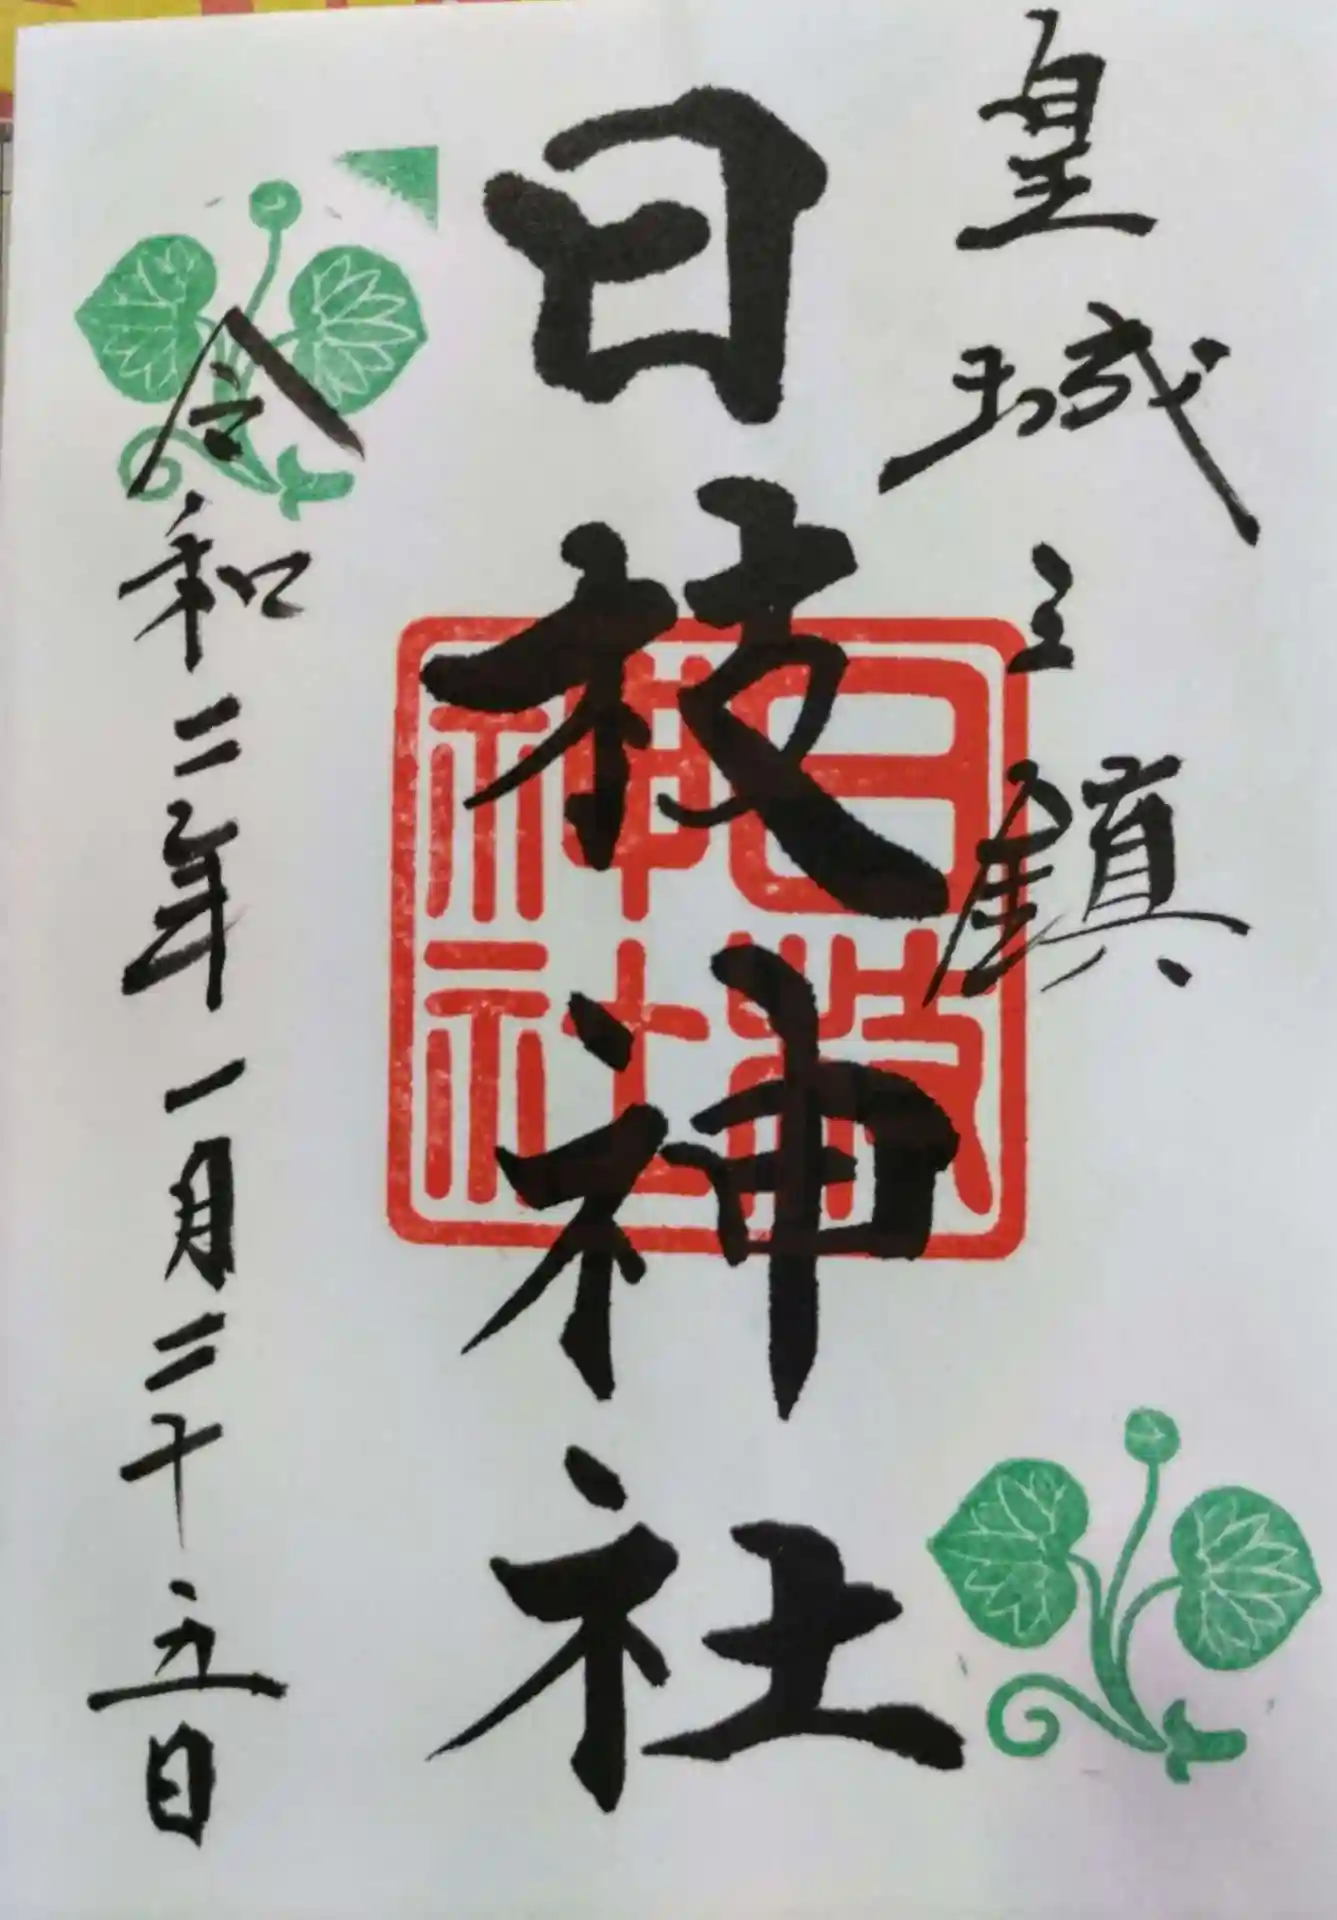 皇城主鎮
日枝神社
日枝神社
令和二年一月二十五日